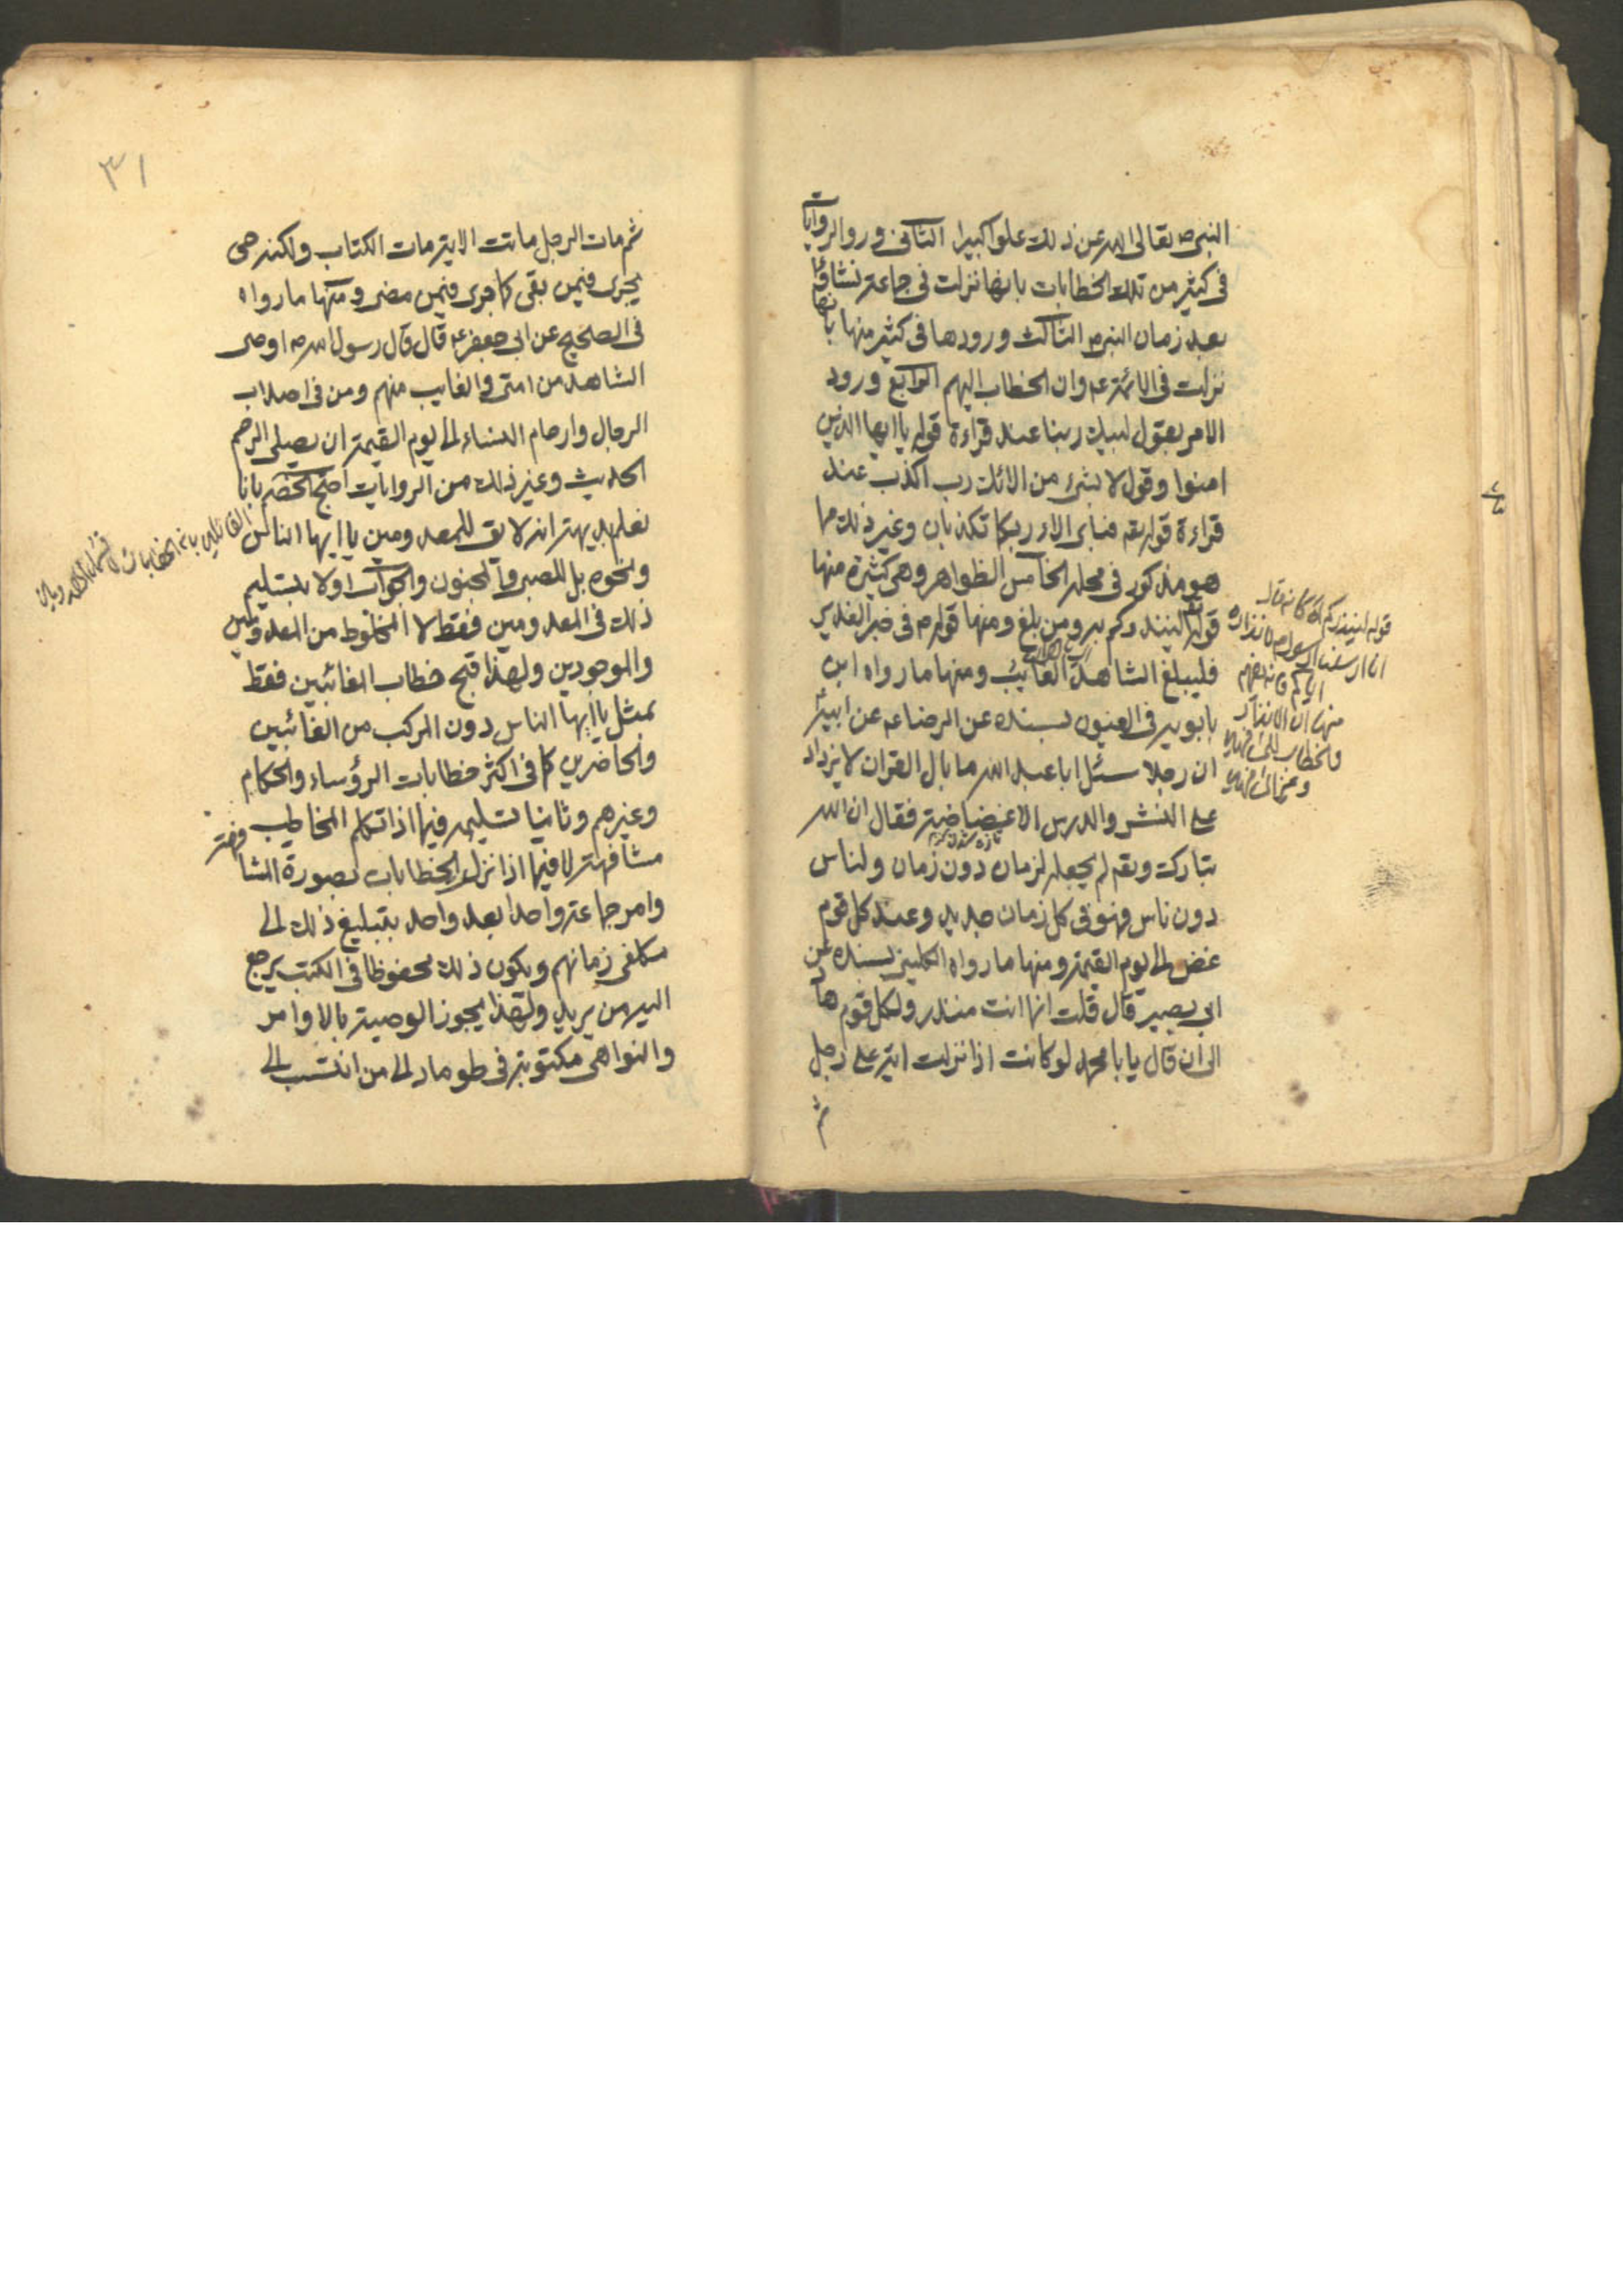 النبی ص تعالی الله عن ذلك علوا كبیرا الثانی ورو الروایات
فی كثیر من تلك الخطابات بانها نزلت فی جماعة نشاؤا
بعد زمان النبی ص الثالث ورودها فی كثیر منها بانها
نزلت فی الائمة عم وان الخطاب الیهم الرابع ورود
الامر بقول لبیك ربنا عند قراءة قوله یا ایها الذین
امنوا وقول لا بشیء من الائك رب اكذب عند
قراءة قوله تعم فبای الاء ربكما تكذبان وغیر ذلك مما
هو مذكور فی محله الخامس الظواهر وهی كثیرة منها
قوله تع لینذركم به ومن بلغ ومنها قوله ص فی خبر الغدیر
فلیبلغ الشاهد الغائب ومنها ما رواه ابن
بابویه فی العیون بسنده عن الرضا عم عن ابیه ع
ان رجلا سئل ابا عبد الله ما بال القران لا یزداد
علی النشر والدرس الا غضاضة فقال ان الله
تبارك وتعم لم یجعله لزمان دون زمان ولناس
دون ناس فهو فی كل زمان جدید وعند كل قوم
غض الی یوم القیمة ومنها ما رواه الكلینی بسنده عن
ابی بصیر قال قلت انما انت منذر ولكل قوم هاد
الی ان قال یا با محمد لو كانت اذا نزلت ایة علی رجل
ثم
قوله لینذركم كانه قال
الرسول لانذار
منها ان الانذار
والخطاب
٣١
ثم مات الرجل ماتت الایة مات الكتاب ولكنه حی
یجری فیمن بقی كما جری فیمن مضی ومنها ما رواه
فی الصحیح عن ابی جعفر عم قال قال رسول الله ص اوصی
الشاهد من امتی والغایب منهم ومن فی اصلاب
الرجال وارحام النساء الی یوم القیمة ان یصلی الرحم
الحدیث وغیر ذلك من الروایات احتج الخصم بانا
نعلم بدیهة انه لا یق للمعدومین یا ایها الناس
ونحوه بل للصبی والمجنون والجواب اولا بتسلیم
ذلك فی المعدومین فقط لا المخلوط من المعدومین
والموجودین ولهذا قبح خطاب الغائبین فقط
بمثل یا ایها الناس دون المركب من الغائبین
والحاضرین كما فی اكثر خطابات الرؤساء والحكام
وغیرهم وثانیا تسلیمه فیما اذا تكلم المخاطب
مشافهة لا فیما اذا نزل الخطابات بصورة المشافهة
وامر جماعة واحدا بعد واحد بتبلیغ ذلك الی
مكلفی زمانهم ویكون ذلك محفوظا فی الكتب یرجع
الیه من یرید ولهذا یجوز الوصیة بالاوامر
والنواهی مكتوبة فی طومار الی من انتسب الی
القائلین بان الخطابات لا تشمل المعدومین